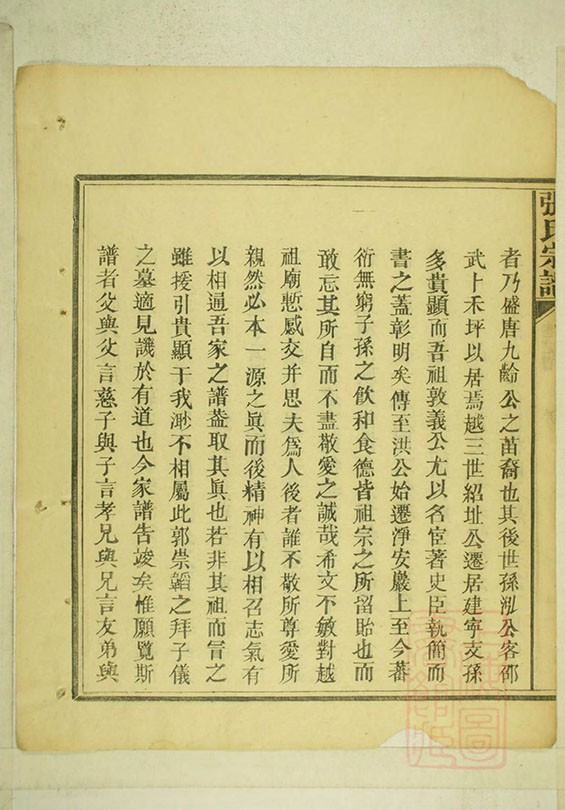 張氏宗譜
者乃盛唐九齡公之苗裔也其後世孫泓公客邵
武上禾坪以居焉越三世紹址公遷居建寧文孫
多貴顯而吾祖敦義公尤以名宦著史臣執簡而
書之蓋彰明矣傳至洪公始遷淨安嚴上至今蕃
衍無窮子孫之飲和食德皆祖宗之所留貽也而
敢忘其所自而不盡敬愛之誠哉希文不敏對越
祖廟慙感交并思夫爲人後者誰不敬所尊愛所
親然必本一源之眞而後精神有以相召志氣有
以相通吾家之譜葢取其眞也若非其祖而冒之
雖援引貴顯于我渺不相屬此郭崇韜之拜子儀
之墓適見譏於有道也今家譜告竣矣惟願覽斯
譜者父與父言慈子與子言孝兄與兄言友弟與